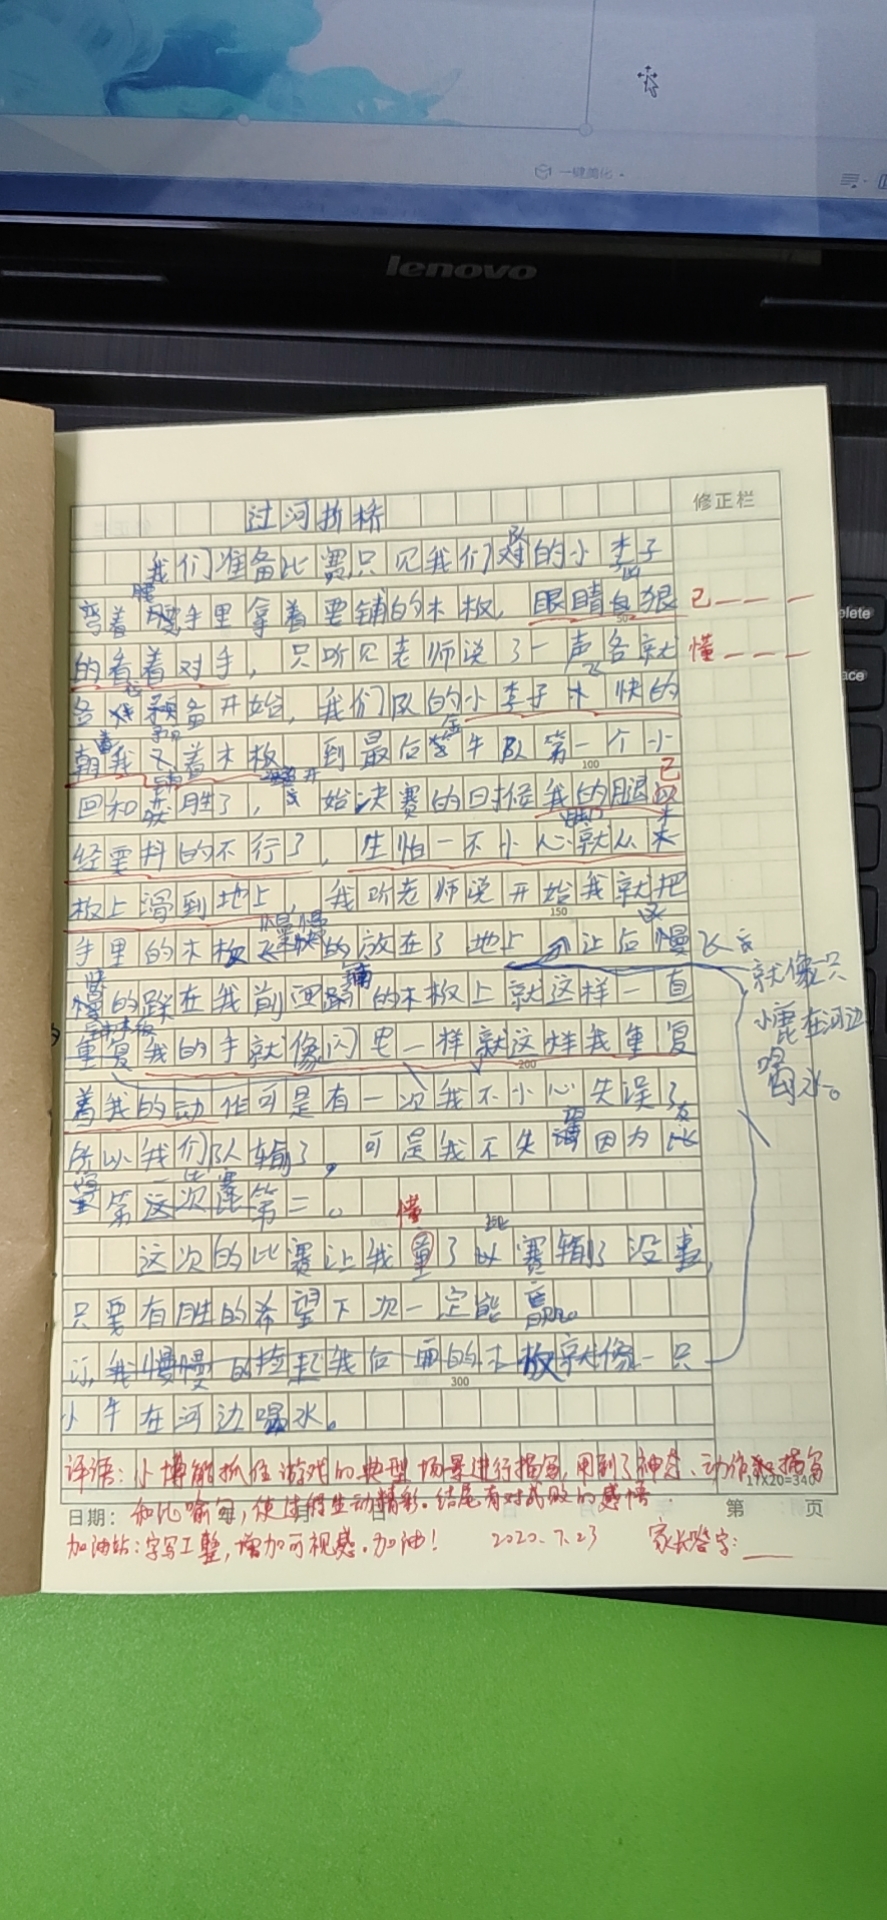 一键美化
lenovo
修正栏
过河拆桥
我们准备比赛只见我们队的小李子
弯着腰手里拿着要铺的木板，眼睛白狠
己
的看着对手，只听见老师说了一声各就
懂
各 预备开始，我们队的小李子 快的
朝我 着木板 到最后 牛队第一个小
100
回和 胜了， 始决赛的时候我的腿已
经要抖的不行了，生怕一不小心就从木
板上滑到地上，我听老师说开始我就把
150
手里的木板 慢慢的放在了地上 让后慢
慢的踩在我前面 的木板上就这样一直
就像只
小鹿在河边
喝水。
重复我的手就像闪电一样就这样我重复
200
着我的动作可是有一次我不小心失误了
所以我们队输了，可是我不失望因为
第 这次 第二。
懂
250
这次的比赛让我 了 赛输了没事，
只要有胜的希望下次一定能赢。
我慢慢的捡起我后面的木板就像一只
300
小牛在河边喝水。
评语：小博能抓住游戏的典型场景进行描写，用到了神态、动作 描写
17X20=340
和比喻句，使 生动精彩。结尾有对成败的感悟
日期： 年 月 日 第 页
加油站：字写工整，增加可视感。加油！ 2020.7.23 家长签字：